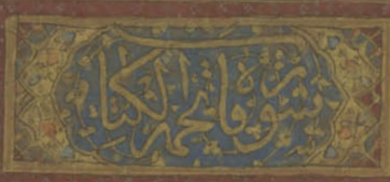 سورة فاتحة الكتاب